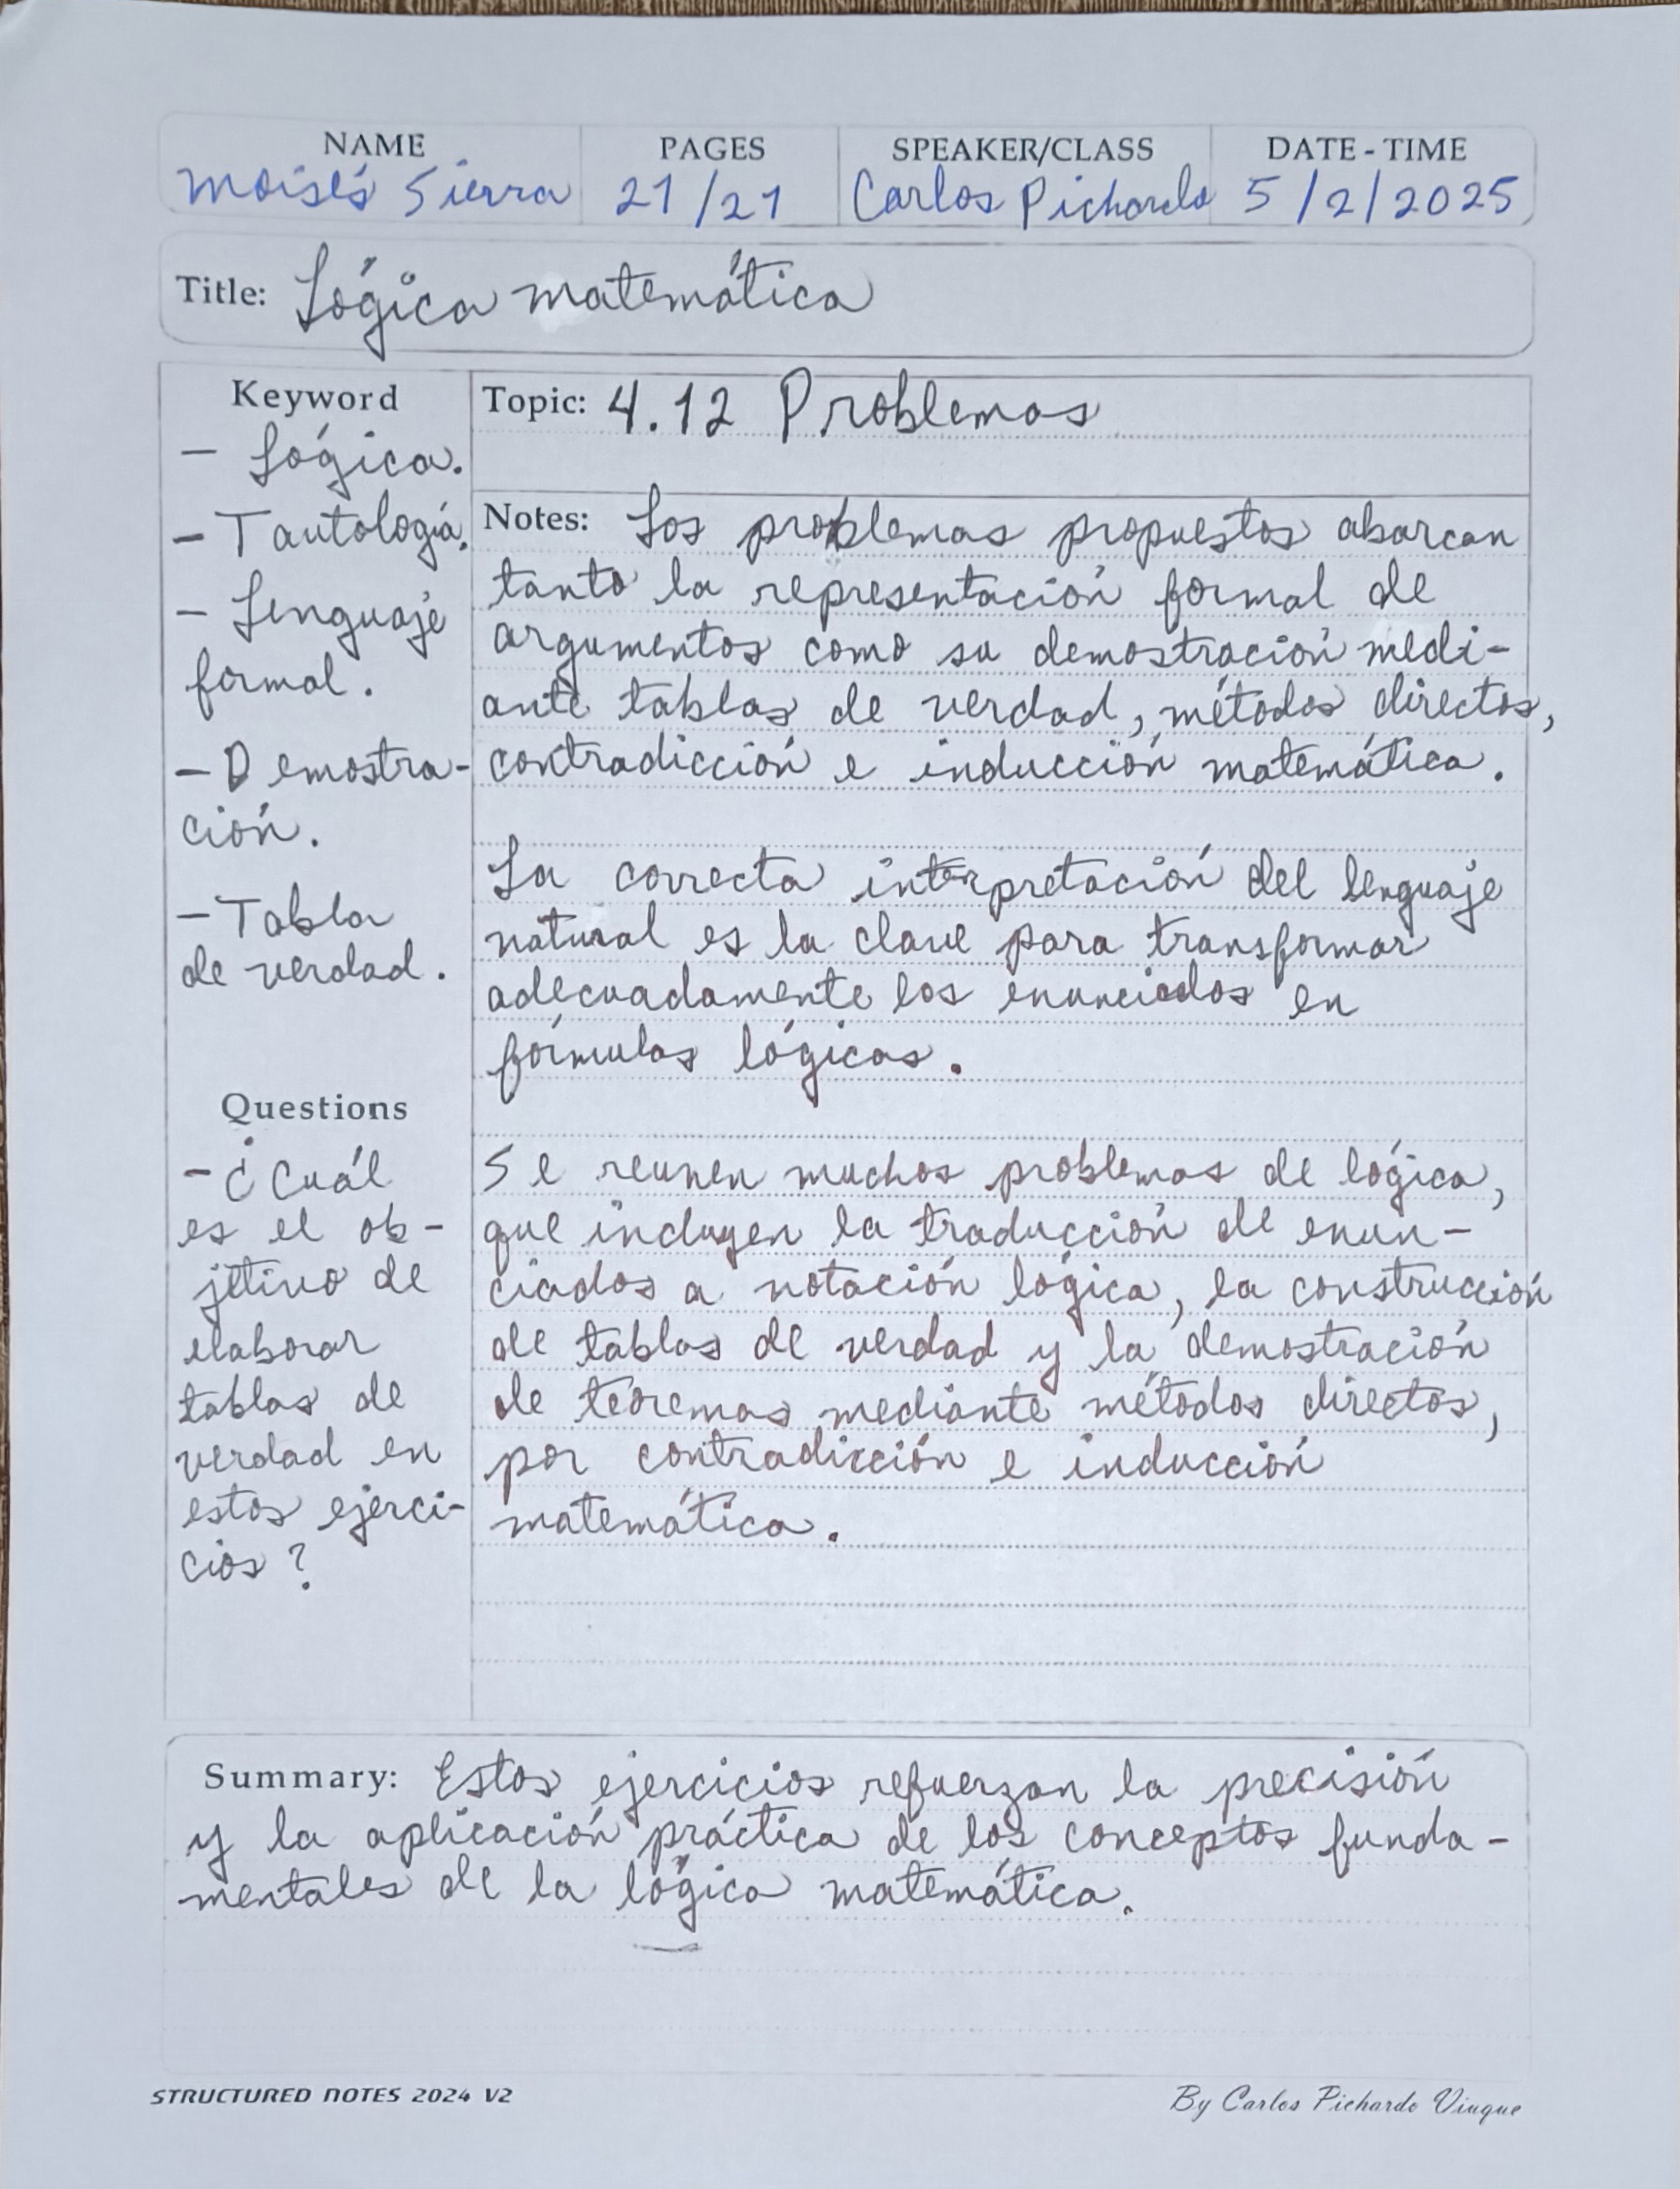 NAME PAGES SPEAKER/CLASS DATE - TIME
Moisés Sierra 21/21 Carlos Pichardo 5/2/2025
Title: Lógica matemática
Keyword
- Lógica.
- Tautología.
- Lenguaje
formal.
- Demostra-
ción.
- Tabla
de verdad.
Questions
- ¿Cuál
es el ob-
jetivo de
elaborar
tablas de
verdad en
estos ejerci-
cios?
Topic: 4.12 Problemas
Notes: Los problemas propuestos abarcan
tanto la representación formal de
argumentos como su demostración medi-
ante tablas de verdad, métodos directos,
contradicción e inducción matemática.
La correcta interpretación del lenguaje
natural es la clave para transformar
adecuadamente los enunciados en
fórmulas lógicas.
Se reunen muchos problemas de lógica,
que incluyen la traducción de enun-
ciados a notación lógica, la construcción
de tablas de verdad y la demostración
de teoremas mediante métodos directos,
por contradicción e inducción
matemática.
Summary: Estos ejercicios refuerzan la precisión
y la aplicación práctica de los conceptos funda-
mentales de la lógica matemática.
STRUCTURED NOTES 2024 V2 By Carlos Pichardo Viuque